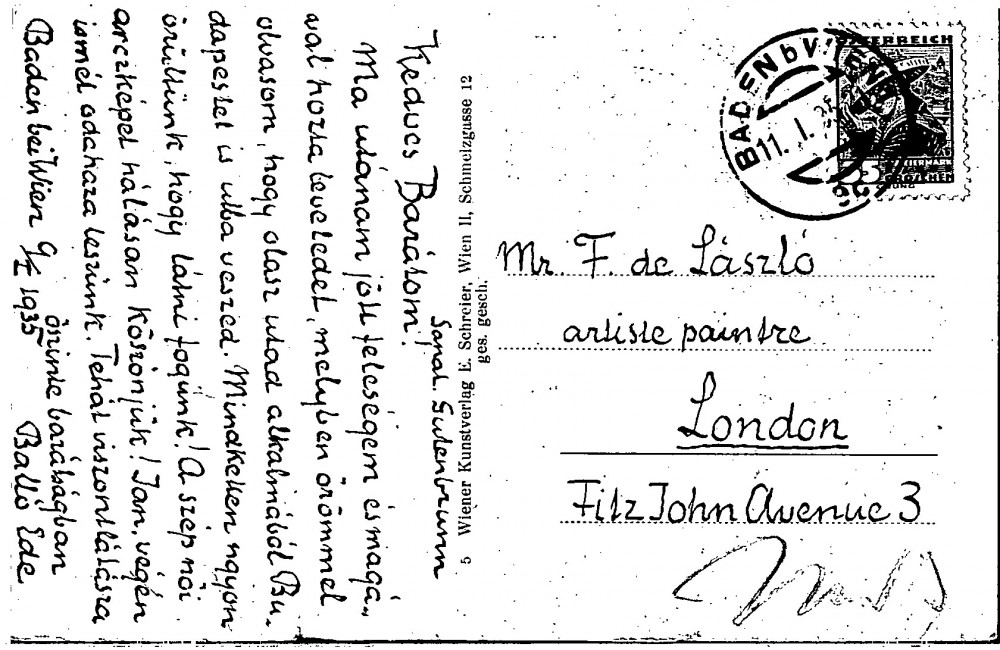 Sanat. Gutenbrunn
Kedves Barátom!
Ma utánam jött feleségem és magá„
val hozta leveledet, melyben örömmel
olvasom, hogy olasz utad alkalmából Bu„
dapestet is utba veszed. Mindketten nagyon
örültünk, hogy látni fogunk! A szép női
arczképet hálásan köszönjük! Jan. végén
ismét odahaza leszünk. Tehát viszontlátásra
őszinte barátságban
Baden bei Wien 9/I 1935
Balló Ede
5 Wiener Kunstverlag E. Schreier, Wien II, Schmelzgasse 12
ges. gesch.
ÖSTERREICH
GROSCHEN
BADEN b WIEN
11. I. 35
Mr. F. de László
artiste paintre
London
Fitz John Avenue 3